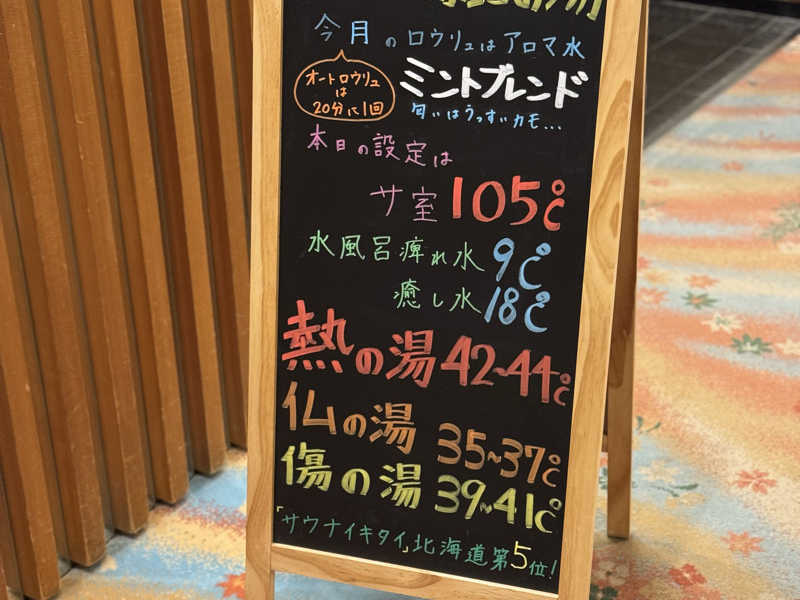 今月のロウリュはアロマ水
オートロウリュ
は
20分に1回
ミントブレンド
匂いはうっすいカモ...
本日の設定は
サ室 105℃
水風呂 痺れ水 9℃
癒し水 18℃
熱の湯 42~44℃
仏の湯 35~37℃
傷の湯 39~41℃
「サウナイキタイ」北海道第5位!